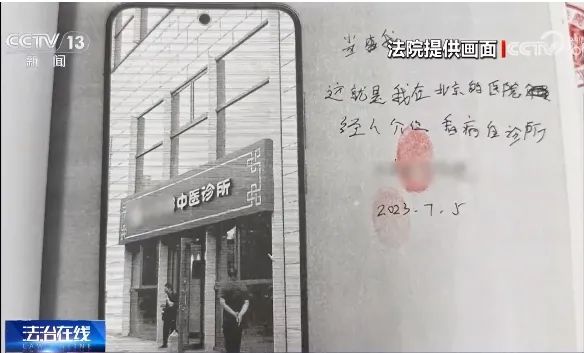 CCTV 13
新闻
法院提供画面
CCTV
这就是我在北京的医院
经人介绍 看病的诊所
2023.7.5
中医诊所
法治在线